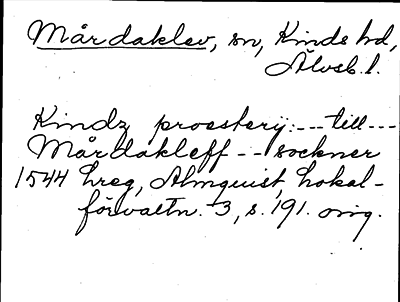 Mårdaklev, sn, Kinds hd,
Älvsb. l.
Kindz proesterij: --- till ---
Mårdakleff -- sockner
1544 hreg, Almquist, Lokal-
förvaltn. 3, s. 191. orig.